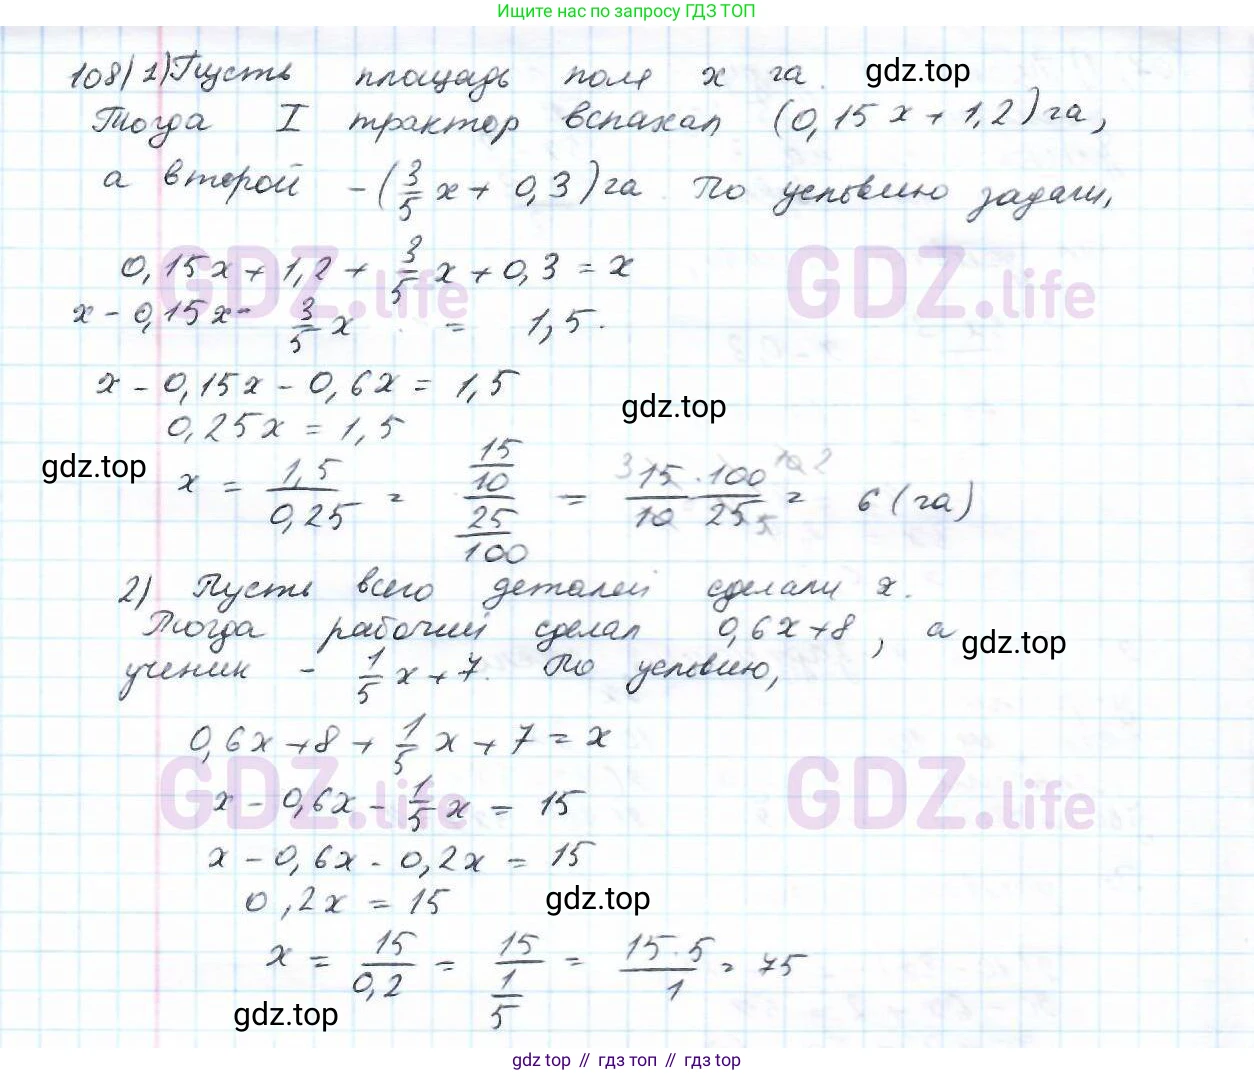 Ищите нас по запросу ГДЗ ТОП
108) 1) Пусть площадь поля x га. gdz.top
Тогда I трактор вспахал (0,15x + 1,2) га,
а второй - (3/5 x + 0,3) га. По условию задачи,
GDZ.life GDZ.life
0,15x + 1,2 + 3/5 x + 0,3 = x
x - 0,15x - 3/5 x = 1,5.
x - 0,15x - 0,6x = 1,5
gdz.top
0,25x = 1,5
gdz.top
x = 1,5/0,25 = (15/10)/(25/100) = (15 · 100)/(10 · 25) = 6 (га)
2) Пусть всего деталей сделали x.
Тогда рабочий сделал 0,6x + 8, а gdz.top
ученик - 1/5 x + 7. По условию,
0,6x + 8 + 1/5 x + 7 = x
GDZ.life GDZ.life
x - 0,6x - 1/5 x = 15
x - 0,6x - 0,2x = 15
0,2x = 15 gdz.top
x = 15/0,2 = 15/(1/5) = (15 · 5)/1 = 75
gdz.top
gdz top // гдз топ // gdz top